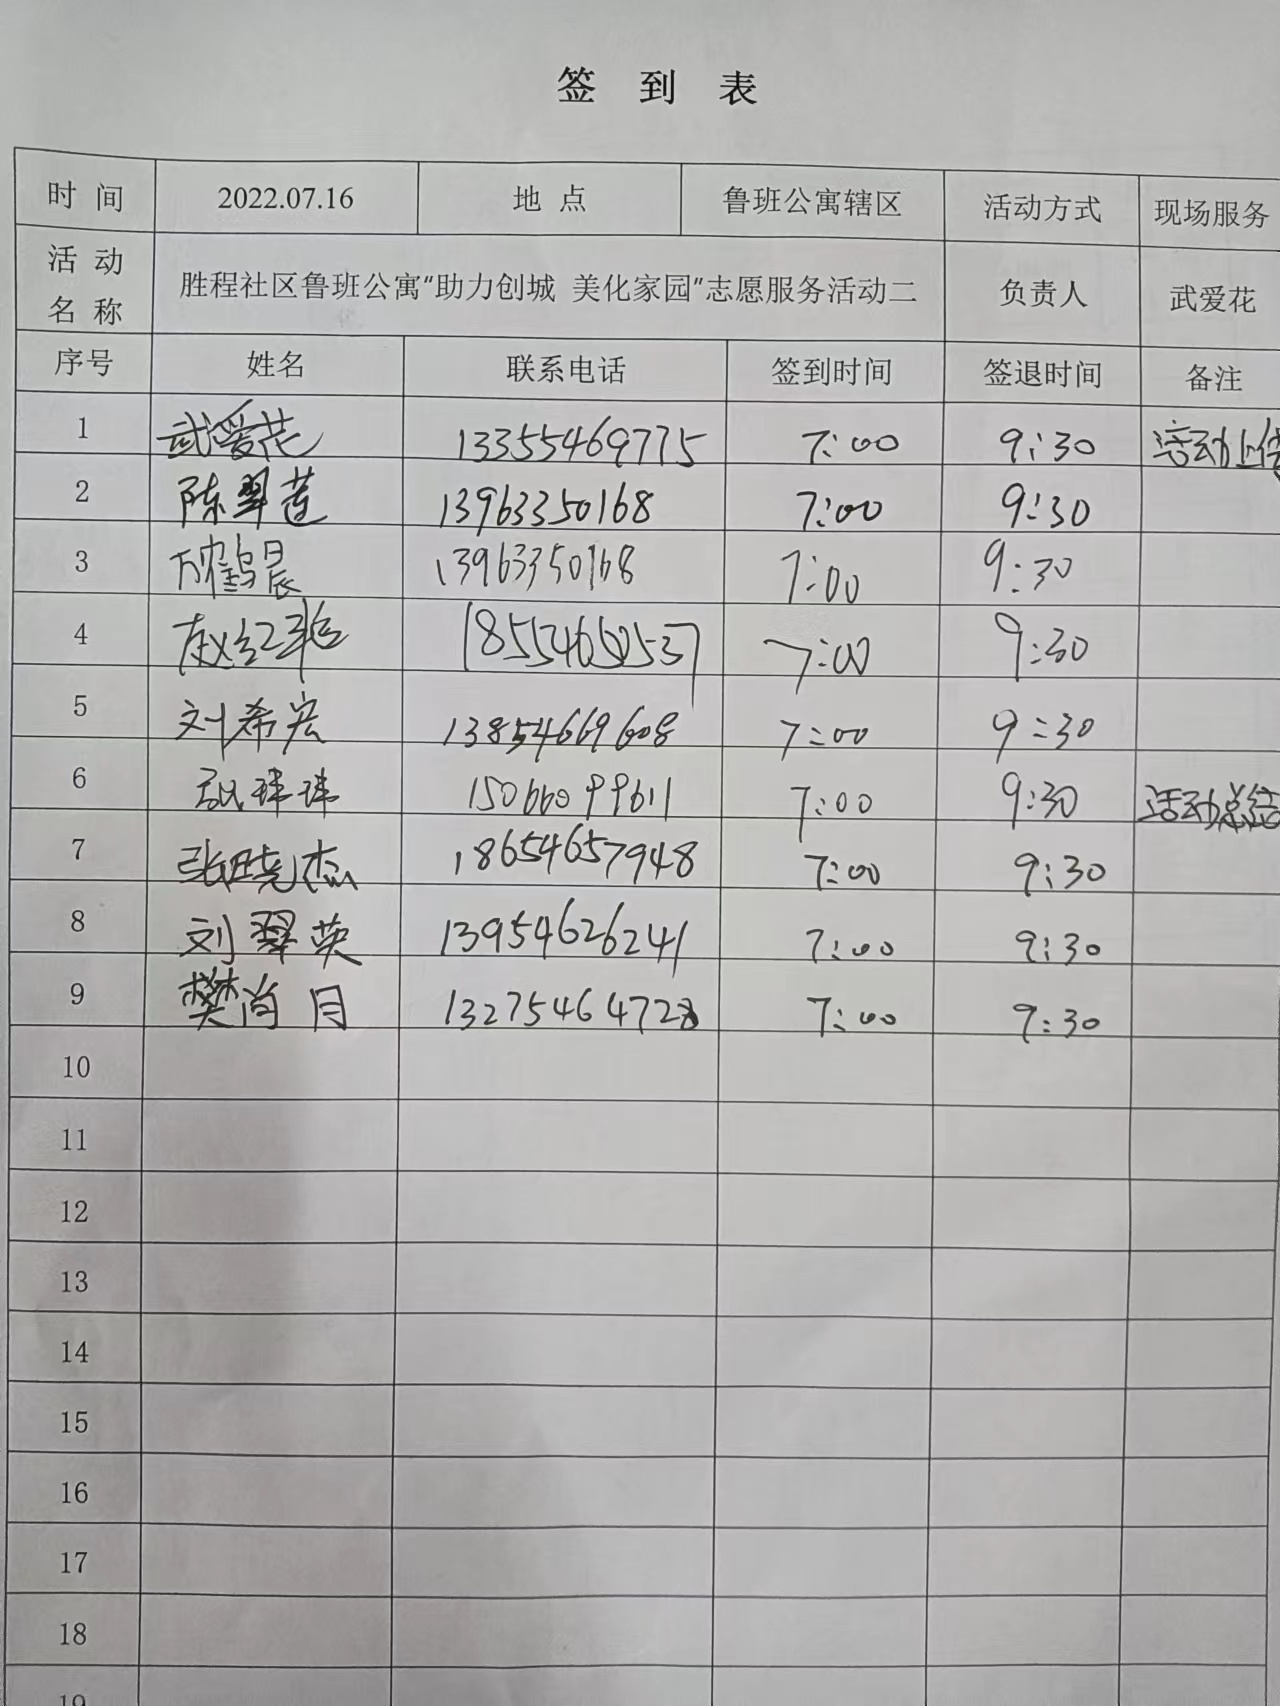 签 到 表
时 间 2022.07.16 地 点 鲁班公寓辖区 活动方式 现场服务
活 动 名 称 胜程社区鲁班公寓“助力创城 美化家园”志愿服务活动二 负责人 武爱花
序号 姓名 联系电话 签到时间 签退时间 备注
1 武爱花 13355469775 7:00 9:30 活动上传
2 陈翠莲 13963350168 7:00 9:30
3 鹤晨 13963350168 7:00 9:30
4 赵红艳 7:00 9:30
5 刘希宏 13854669608 7:00 9:30
6 玮玮 15066099611 7:00 9:30 活动总结
7 张晓杰 18654657948 7:00 9:30
8 刘翠英 13954626241 7:00 9:30
9 樊尚月 13275464728 7:00 9:30
10
11
12
13
14
15
16
17
18
19